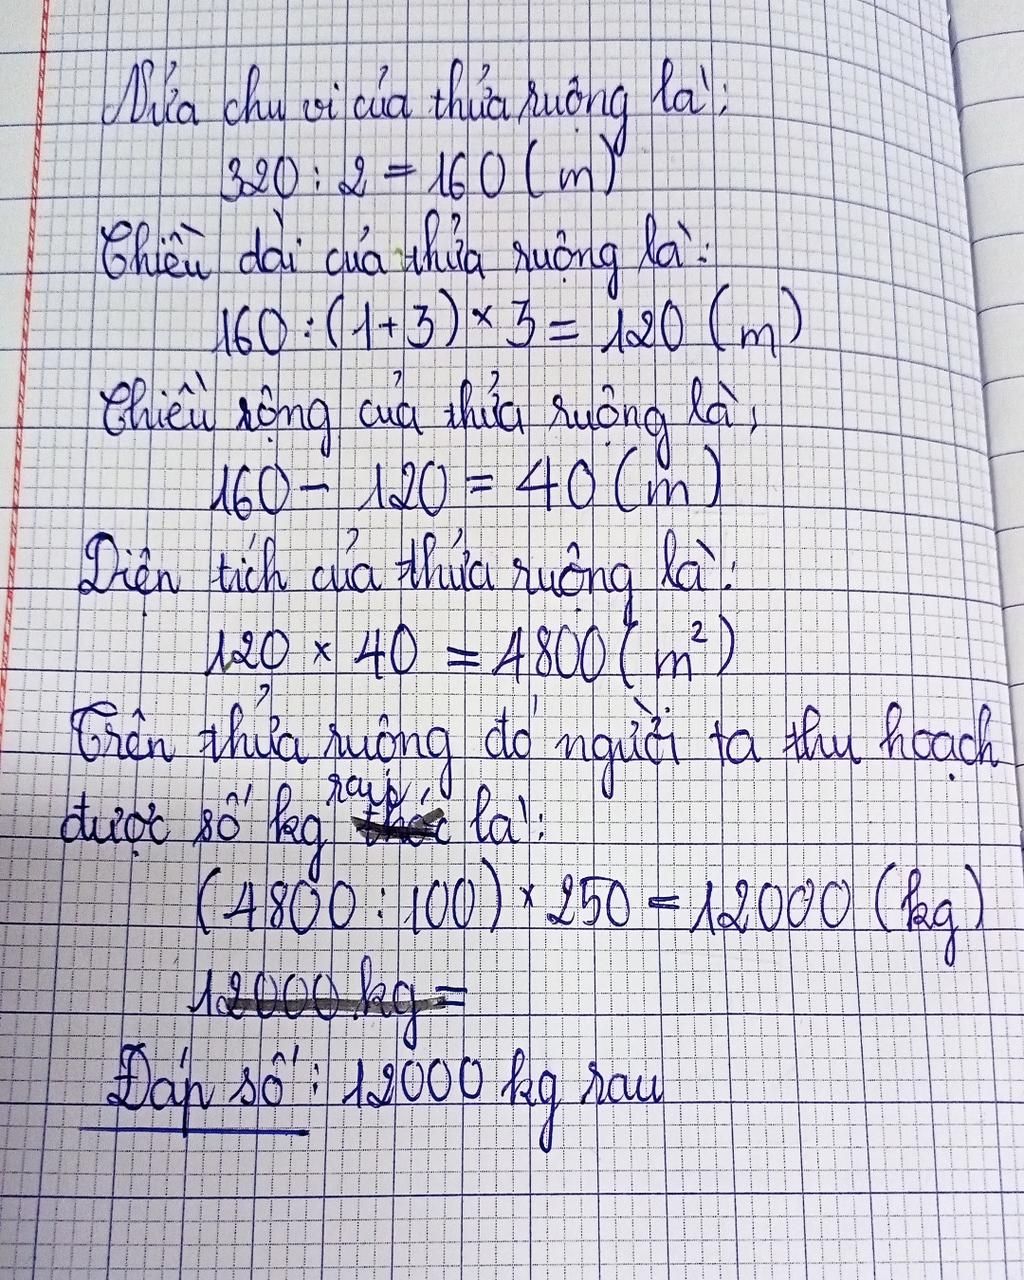 Nửa chu vi của thửa ruộng là:
320 : 2 = 160 (m)
Chiều dài của thửa ruộng là:
160 : (1+3) × 3 = 120 (m)
Chiều rộng của thửa ruộng là:
160 - 120 = 40 (m)
Diện tích của thửa ruộng là:
120 × 40 = 4800 (m²)
Trên thửa ruộng đó người ta thu hoạch
được số kg rau là:
(4800 : 100) × 250 = 12000 (kg)
12000 kg =
Đáp số: 12000 kg rau